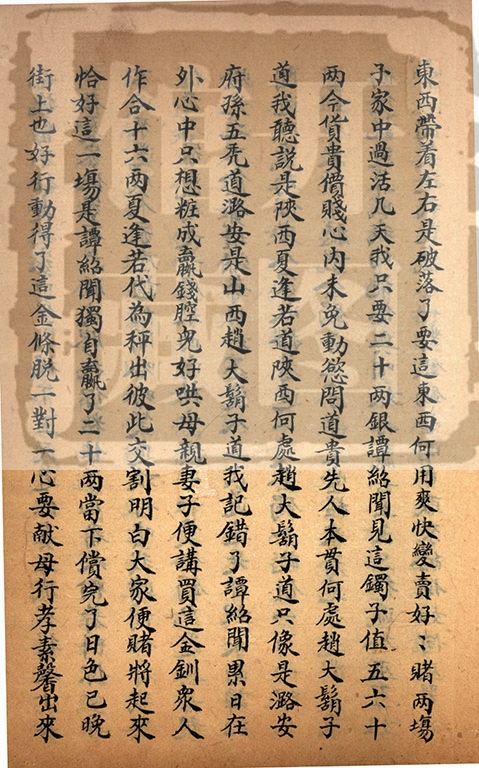 東西帶着左右是破落了要這東西何用爽快變賣好〻賭两塲
子家中過活几天我只要二十两銀譚紹聞見這鐲子值五六十
两今貨貴價賤心内未免動慾問道貴先人本貫何處趙大鬍子
道我聽説是陝西夏逢若道陝西何處趙大鬍子道只像是潞安
府孫五秃道潞安是山西趙大鬍子道我記錯了譚紹聞累日在
外心中只想粧成贏錢腔兒好哄母親妻子便講買這金釧衆人
作合十六两夏逢若代為秤出彼此交割明白大家便賭將起來
恰好這一塲是譚紹聞獨自贏了二十两當下償完了日色已晚
街上也好行動得了這金條脱一對一心要献母行孝素馨出來